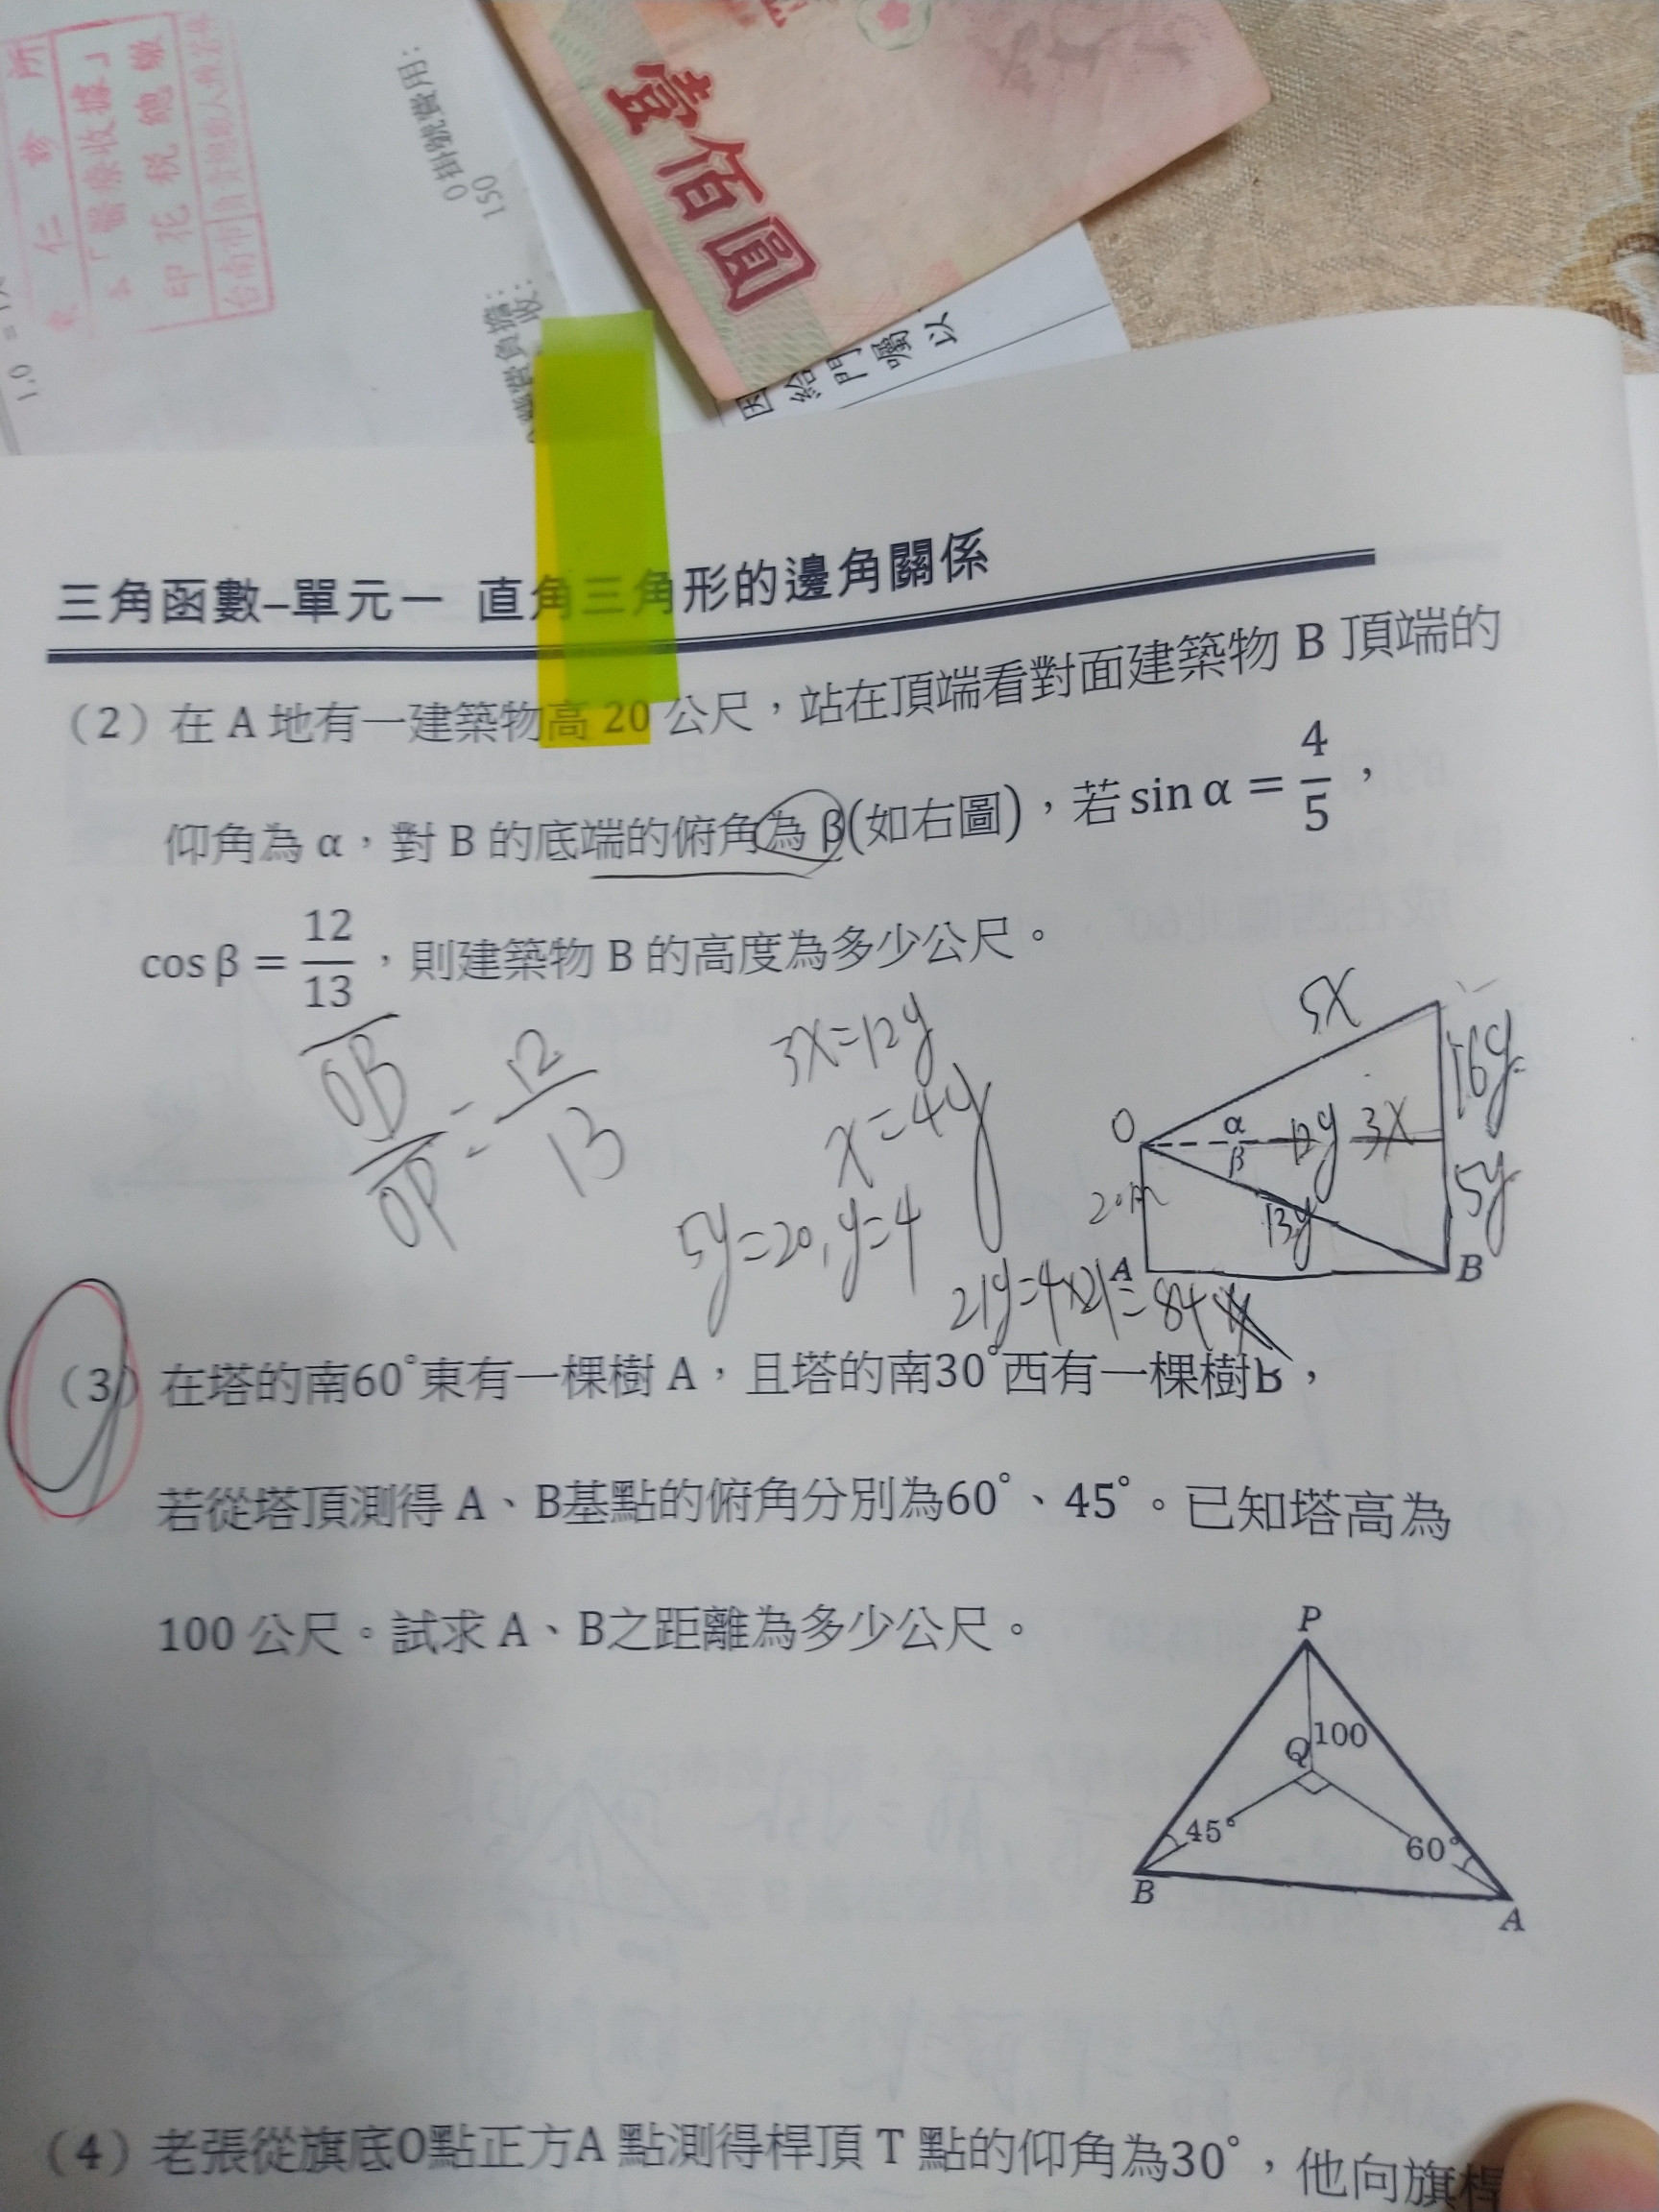 所
東 仁 診
「醫療收據」
印花稅總繳
台南市
0 掛號費用:
150
1.0
壹佰圓
三角函數–單元一 直角三角形的邊角關係
(2) 在 A 地有一建築物高 20 公尺,站在頂端看對面建築物 B 頂端的
仰角為 α,對 B 的底端的俯角為 β(如右圖),若 sin α = 4/5,
cos β = 12/13,則建築物 B 的高度為多少公尺。
OB/OP = 12/13
3x=12y
x=4y
5y=20, y=4
21y=4×21=84
5x
16y
O
α
12y
3x
β
5y
20m
13y
A
B
(3) 在塔的南60°東有一棵樹 A,且塔的南30°西有一棵樹B,
若從塔頂測得 A、B基點的俯角分別為60°、45°。已知塔高為
100 公尺。試求 A、B之距離為多少公尺。
P
100
Q
45°
60°
B
A
(4) 老張從旗底O點正方A 點測得桿頂 T 點的仰角為30°,他向旗桿